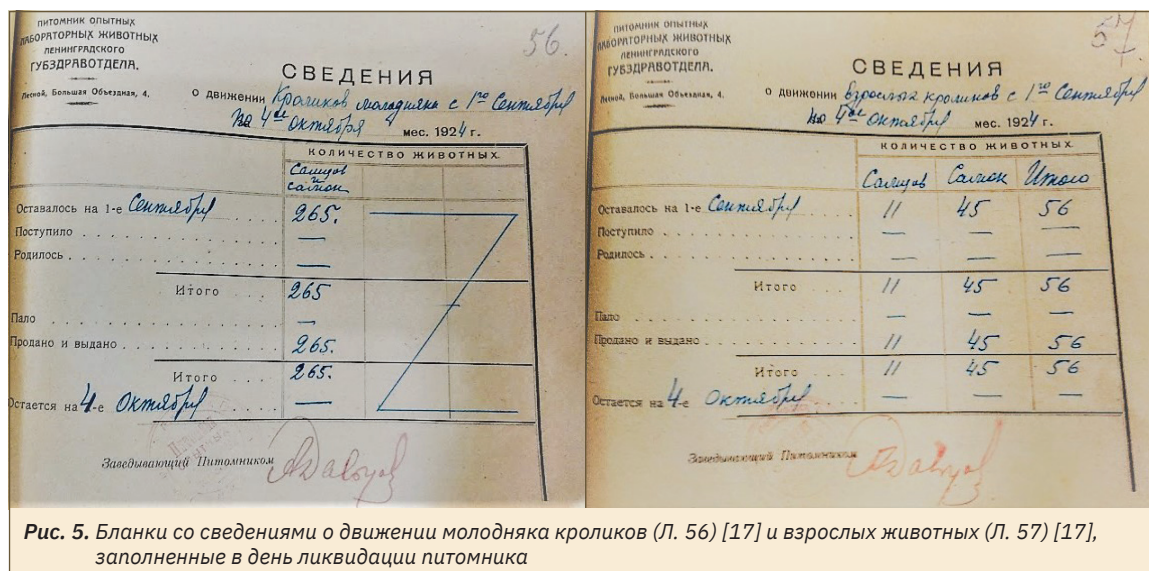 ПИТОМНИК ОПЫТНЫХ
ЛАБОРАТОРНЫХ ЖИВОТНЫХ
ЛЕНИНГРАДСКОГО
ГУБЗДРАВОТДЕЛА.
Лесной, Большая Объездная, 4.
56.
СВЕДЕНИЯ
О движении Кроликов молодняка с 1го Сентября
по 4ое октября мес. 1924 г.
КОЛИЧЕСТВО ЖИВОТНЫХ.
Самцов
и
самок
Оставалось на 1-е Сентября 265.
Поступило —
Родилось —
Итого 265
Пало —
Продано и выдано 265.
Итого 265.
Остается на 4-е Октября —
Заведывающий Питомником
ПИТОМНИК ОПЫТНЫХ
ЛАБОРАТОРНЫХ ЖИВОТНЫХ
ЛЕНИНГРАДСКОГО
ГУБЗДРАВОТДЕЛА.
Лесной, Большая Объездная, 4.
57
СВЕДЕНИЯ
О движении взрослых кроликов с 1го Сентября
по 4ое октября мес. 1924 г.
КОЛИЧЕСТВО ЖИВОТНЫХ.
Самцов Самок Итого
Оставалось на 1-е Сентября 11 45 56
Поступило — — —
Родилось — — —
Итого 11 45 56
Пало — — —
Продано и выдано 11 45 56
Итого 11 45 56
Остается на 4-е Октября — — —
Заведывающий Питомником
Рис. 5. Бланки со сведениями о движении молодняка кроликов (Л. 56) [17] и взрослых животных (Л. 57) [17],
заполненные в день ликвидации питомника